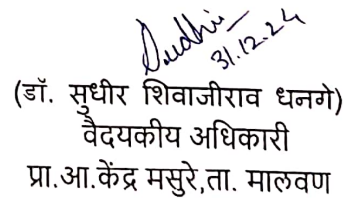 Sudhir
31.12.24
(डॉ. सुधीर शिवाजीराव धनगे)
वैदयकीय अधिकारी
प्रा.आ.केंद्र मसुरे,ता. मालवण